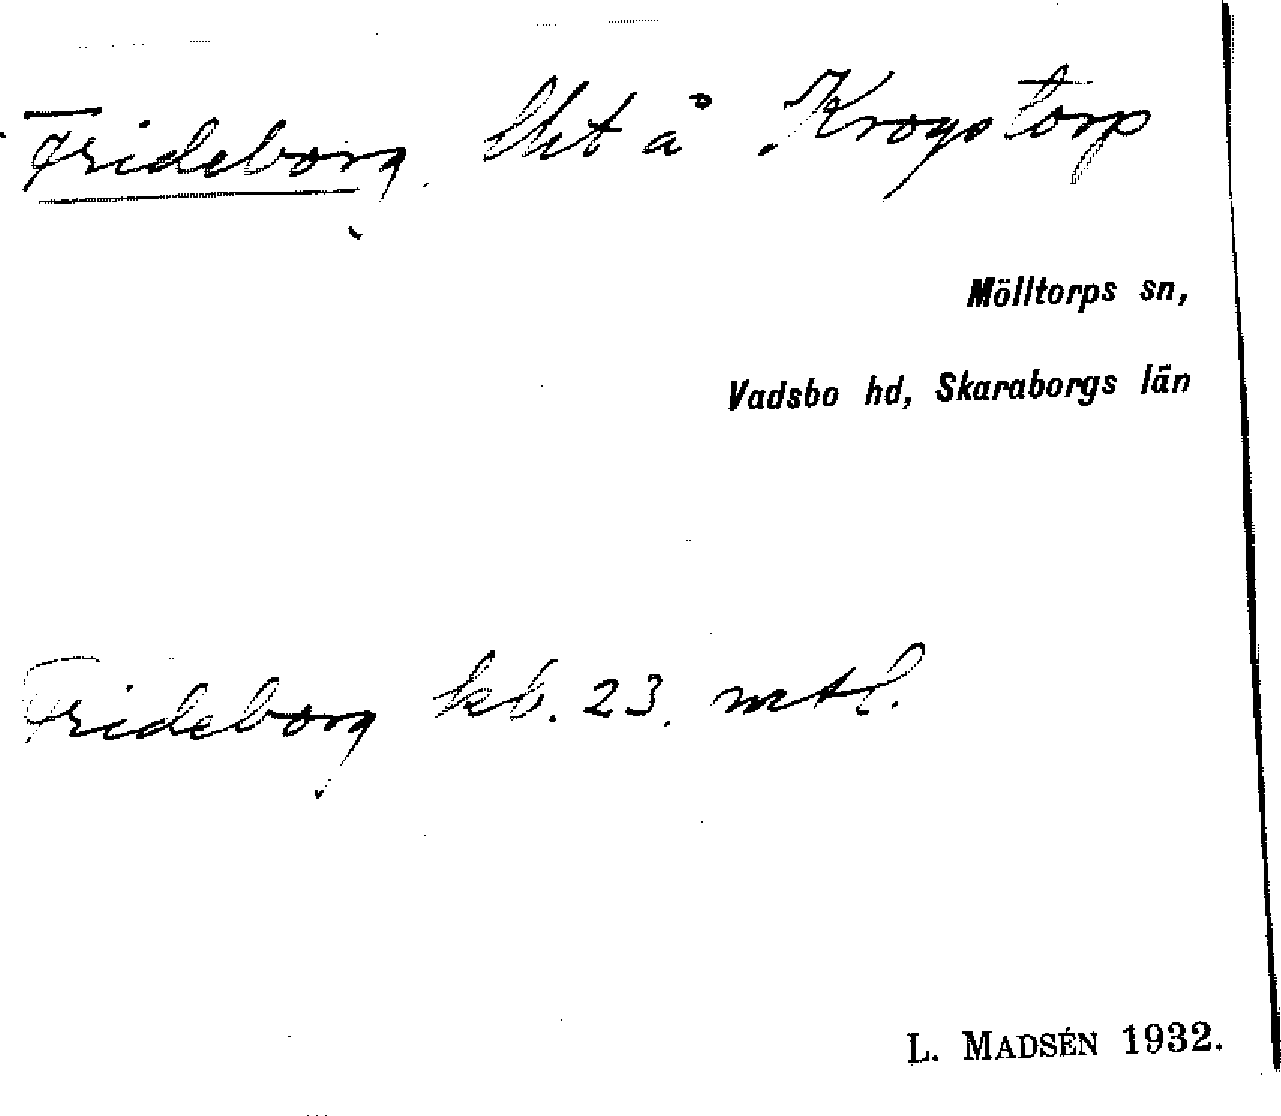 Frideborg. lht å Krogstorp
Mölltorps sn,
Vadsbo hd, Skaraborgs län
Frideborg kb. 23. mtl.
L. MADSÉN 1932.